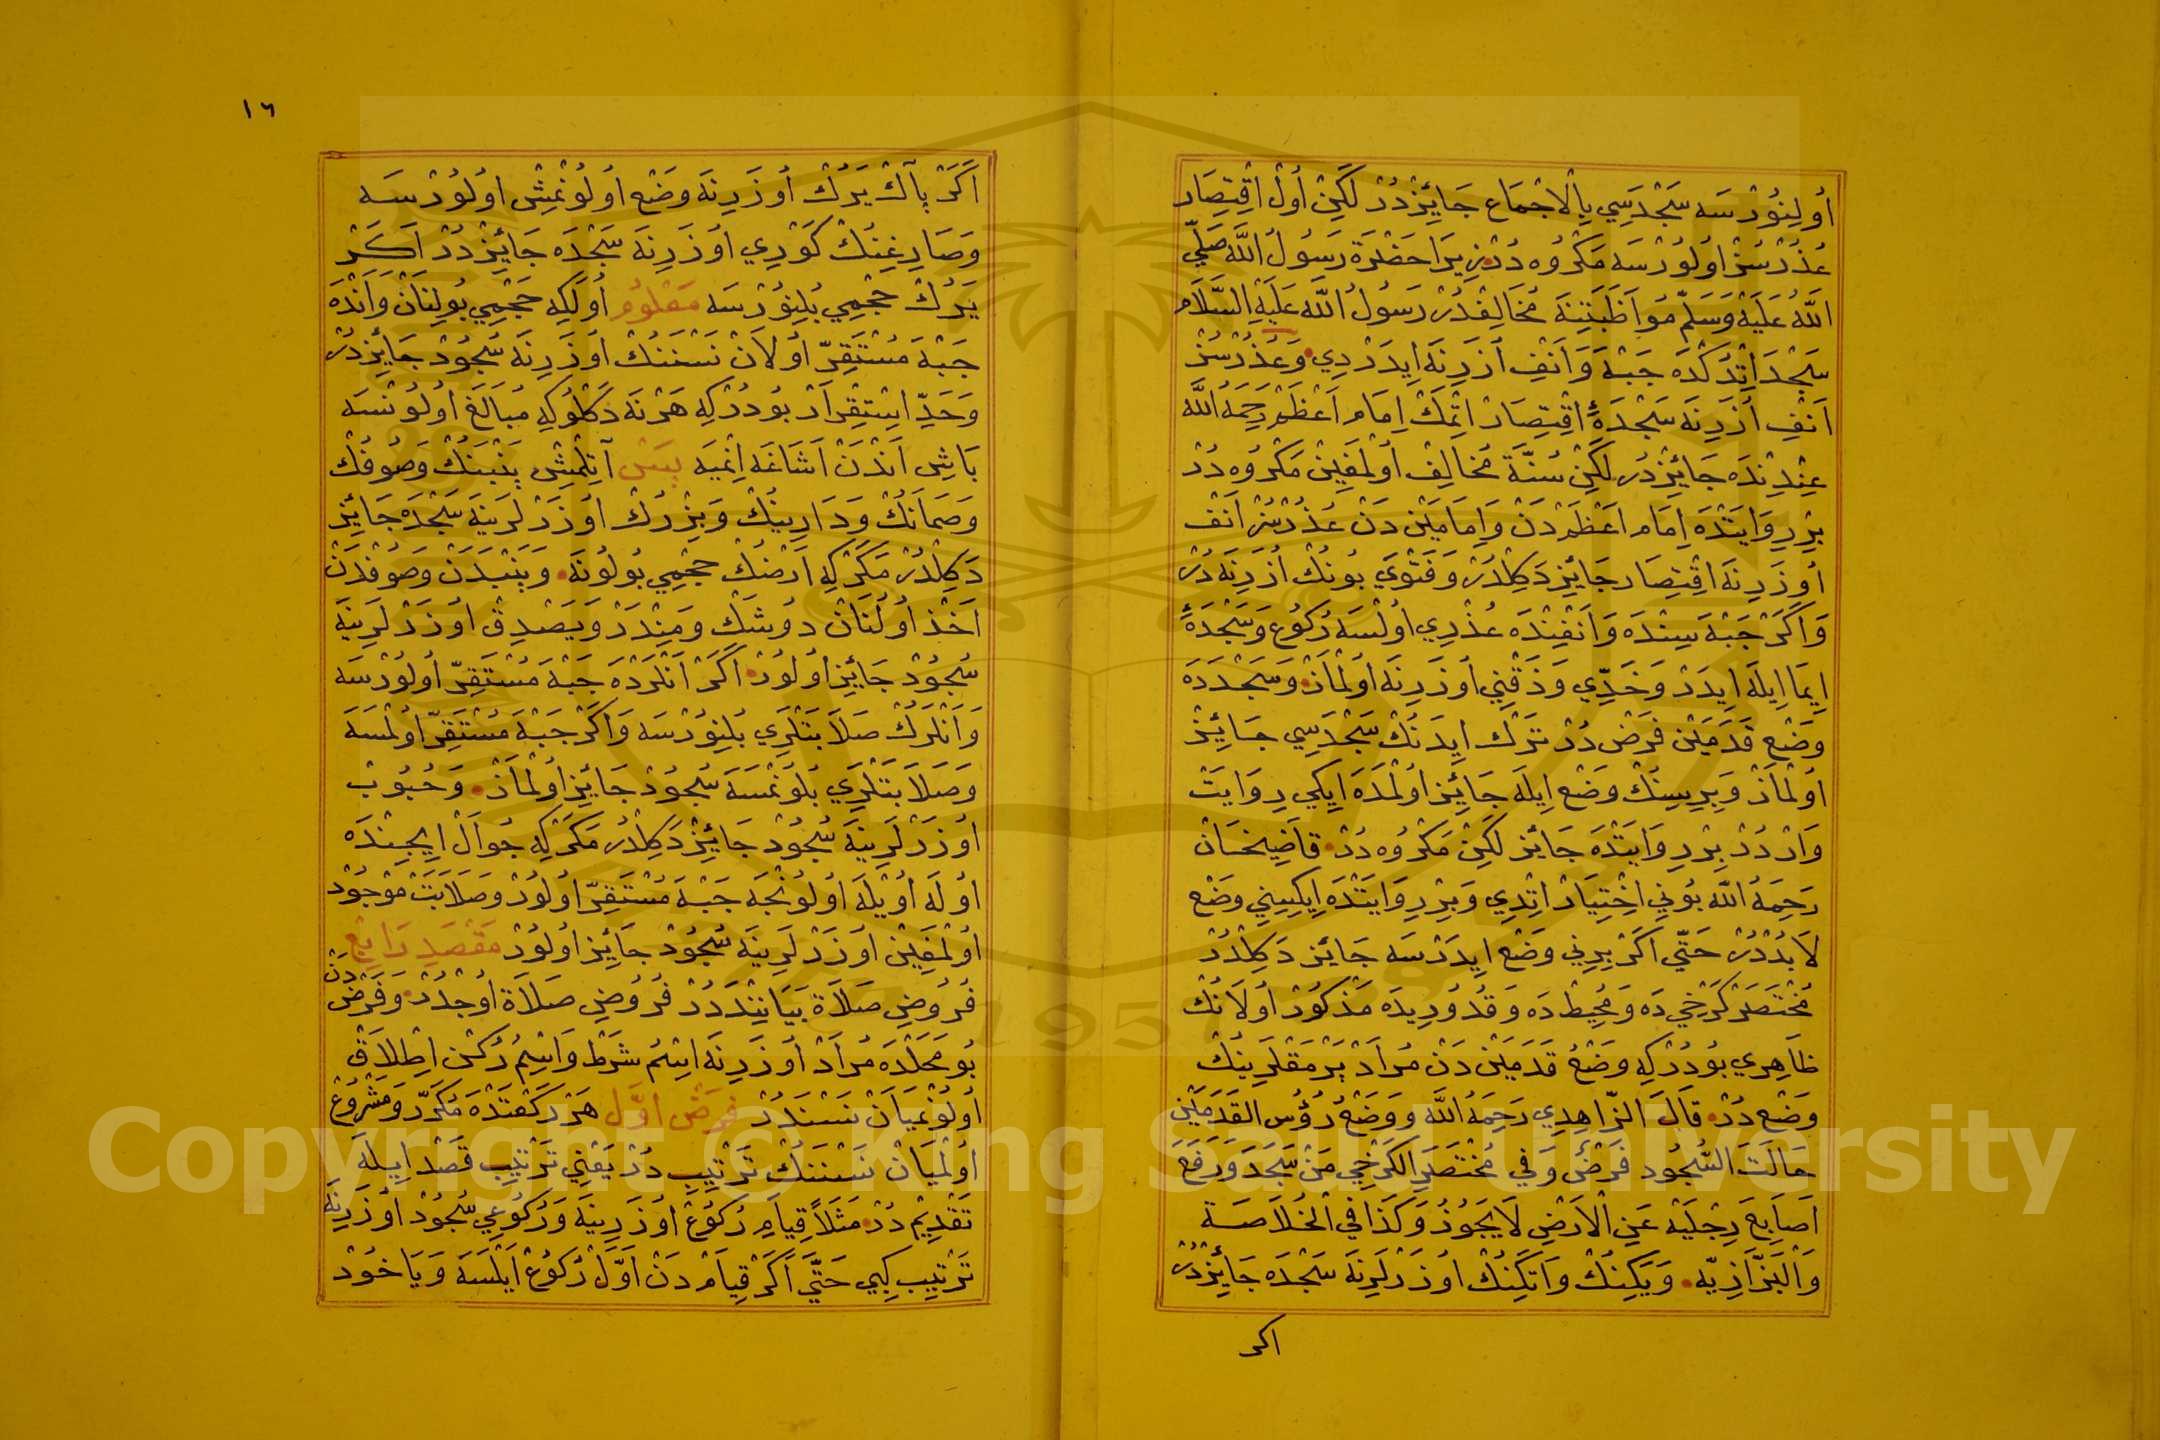 اُولِنوُرْسَه سَجْدَسِي بِالْاجْمَاع جَائِزْدُرْ لَكِنْ اُولْ اقْتِصَار
عُذْرْسُزْ اوُلوُرْسَه مَكْروُه دُرْ زِيرَا حَضْرَة رَسُولُ اللَّه صَلَّي
اللَّهُ عَلَيْهِ وَسَلَّمْ مُوَاظَبَتِنَه مُخَالِفْدُرْ رَسُولُ اللَّه عَلَيْهِ السَّلَام
سَجْدَ اِتْدُكْدَه جَبْهَه وَ اَنْفِ اُزَرِنَه اِيدَرْدِي وَعُذْرْسُزْ
اَنْفِ اُزَرِنَه سَجْدَهءِ اقْتِصَارْ اتْمَكْ اِمَام اَعْظَمْ رَحِمَهُ اللَّه
عِنْدِنْدَه جَائِزْدُرْ لَكِنْ سُنَّة مُخَالِفْ اُولْمَغِينْ مَكْروُه دُرْ
بِرْ رِوَايَتْدَه اِمَام اعْظَمْ دَنْ وَاِمَامَيْن دَنْ عُذْرْسُزْ اَنْف
اُوزَرِنَه اقْتِصَار جَائِز دَكِلْدُرْ وَ فَتْوَي بُونُكْ اُزَرِنَه دُرْ
وَ اَكَرْ جَبْهَ سِنْدَه وَ اَنْفِنْدَه عُذْرِي اُولْسَه رُكوُع وَ سَجْدَهءِ
اِيمَا اِيلَه اِيدَرْ وَ خَدِّي وَ ذَقْنِي اوُزَرِنَه اوُلْمَازْ وَ سَجْدَدَه
وَضْعِ قَدَمَيْن فَرْض دُرْ تَرْك ايدَنُكْ سَجْدَسِي جَائِزْ
اوُلْمَازْ وَ بِرِيسِنُكْ وَضْع اِيلَه جَائِز اوُلْمَدَه اِيكِي رِوَايَتْ
وَارْ دُرْ بِرْ رِوَايَتْدَه جَائِز لَكِنْ مَكْروُه دُرْ قَاضِيخَانْ
رَحِمَهُ اللَّه بُونِي اخْتِيَارْ اتْدِي وَ بِرْ رِوَايَتْدَه اِيكِيسِنِي وَضْع
لَا بُدْدُرْ حَتَّي اكَرْ بِرِنِي وَضْع اِيدَرْسَه جَائِز دَكِلْدُرْ
مُخْتَصَرْ كَرْخِي دَه وَ مُحِيطْ دَه وَ قُدُورِيدَه مَذْكوُرْ اوُلَانُكْ
ظَاهِرِي بُودُرْكِه وَضْعُ قَدَمَيْن دَنْ مُرَادْ بَرْمَقْلَرِينُكْ
وَضْع دُرْ قَالَ الزَّاهِدِي رَحِمَهُ اللَّه وَ وَضْعُ رُؤُسِ القَدَمَيْنِ
حَالَتَ السُّجُود فَرْضٌ وَ فِي مُخْتَصَرِ الكَرْخِي مَنْ سَجَدَ وَ رَفَعَ
اَصَابِعَ رِجْلَيْهِ عَنِ الْاَرْضِ لَا يَجُوزُ وَ كَذَا فِي الْخُلَاصَة
وَالْبَزَّازِيّه وَ يَكِنُكْ وَ اتَكِنُكْ اُوزَرْلَرِنَه سَجْدَه جَائِزْدُرْ
اكر
١٦
اَكَرْ پاكْ يَرُكْ اُوزَرِنَه وَضْع اوُلوُنْمِشْ اوُلوُرْسَه
وَ صَارِغِنُكْ كَوْرِي اوُزَرِنَه سَجْدَه جَائِزْ دُرْ اَكَرْ
يَرُكْ حَجْمِي بُلِنوُرْسَه مَعْلوُم اُولَكِه حَجْمِي بُولِنَانْ وَ اَنْدَه
جَبْهَ مُسْتَقِرّ اُولَانْ نَسْنَنُكْ اوُزَرِنَه سُجوُدْ جَائِزدُرْ
وَ حَدِّ اسْتِقْرَارْ بُودُرْكِه هَرْنَه دَكْلُوكِه مُبَالَغَ اوُلوُنْسَه
بَاشِ اَنْدَنْ اَشَاغَه اِنْمَيَه پَسْ آتِلْمِشْ پَنْبَنُكْ وَ صُوفُكْ
وَ صَمَانُكْ وَ دَارِينُكْ وَ بِزْرُكْ اوُزَرْلَرِينَه سَجْدَه جَائِز
دَكِلْدُرْ مَكَرْكِه اَرْضُكْ حَجْمِي بُولوُنَه وَ پَنْبَدَنْ وَ صُوفْدَنْ
اَخْذ اوُلُنَانْ دوُشَكْ وَ مِنْدَرْ وَ يَصْدِقْ اوُزَرْلَرِينَه
سُجوُدْ جَائِز اوُلوُرْ اكَرْ اَنْلَرْدَه جَبْهَ مُسْتَقِرّ اوُلوُرْسَه
وَ اَنْلَرُكْ صَلَابَتْلَرِي بُلِنوُرْسَه وَ اكَرْ جَبْهَ مُسْتَقِرّ اوُلْمَسَه
وَ صَلَابَتْلَرِي بُلوُنْمَسَه سُجوُدْ جَائِز اوُلْمَازْ وَ حُبوُبْ
اوُزَرْلَرِينَه سُجوُدْ جَائِزْ دَكِلْدُرْ مَكَرْكِه جُوَالْ اِيچِنْدَه
اوُلَه اوُيْلَه اوُلوُنْجَه جَبْهَ مُسْتَقِرّ اوُلوُرْ وَ صَلَابَتْ مَوْجُوُدْ
اوُلْمَغِينْ اوُزَرْلَرِينَه سُجوُدْ جَائِز اوُلوُرْ مَقْصَدِ رَابِعْ
فُروُضِ صَلَاة بَيَانِنْدَدُرْ فُروُضِ صَلَاة اوُچْدُرْ وَ فَرْض دَنْ
بُو مَحَلْدَه مُرَادْ اوُزَرِنَه اسْمُ شَرْطْ وَ اسْمُ رُكْن اِطْلَاقْ
اُولوُنْمَيَانْ نَسْنَدُرْ فَرْض اوَّل هَرْ رَكْعَتْدَه مُكَرَّر وَ مَشْروُع
اوُلْمَيَانْ نَسْنَنُكْ تَرْتِيبِ دُرْ يَعْنِي تَرْتِيبِ قَصْد اِيلَه
تَقْدِيمْ دُرْ مَثَلًا قِيَامِ رُكُوُعْ اوُزَرِينَه وَ رُكوُعِي سُجوُدْ اوُزَرِنَه
تَرْتِيبْ كِبي حَتَّي اَكَرْ قِيَامْ دَنْ اوَّلْ رُكوُعْ اَيْلَسَه وَ يَاخُوُدْ
Copyright © King Saud University
1957